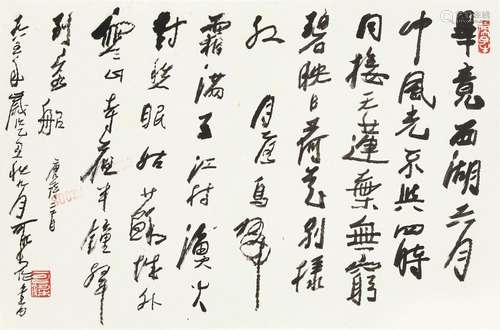 畢竟西湖六月
中風光不與四時
同接天蓮葉無窮
碧映日荷花別樣
紅 月落烏啼
霜滿天江村漁火
對愁眠姑蘇城外
寒山寺夜半鐘聲
到客船 唐詩二首
五年歲乙丑秋九月